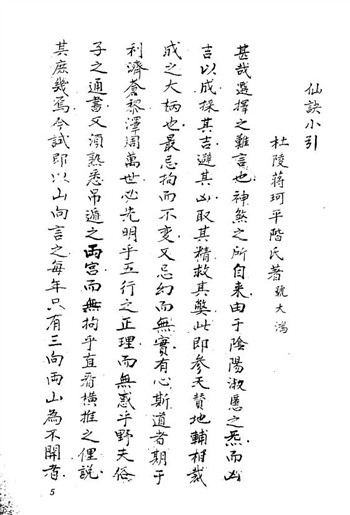 仙訣小引
杜陵蔣珂平階氏著號大鴻
甚哉選擇之難言也神煞之所自来由于陰陽淑慝之炁而凶
吉以成採其吉避其凶取其精救其獘此即参天贊地輔相裁
成之大柄也最忌拘而不变又忌幻而無實有心斯道者期于
利濟蒼黎澤周萬世必先明乎五行之正理而無惑乎野夫俗
子之通書又須熟悉吊遁之両宫而無拘乎直看横推之俚説
其庶幾焉今試即以山向言之每年只有三向両山為不開者
5